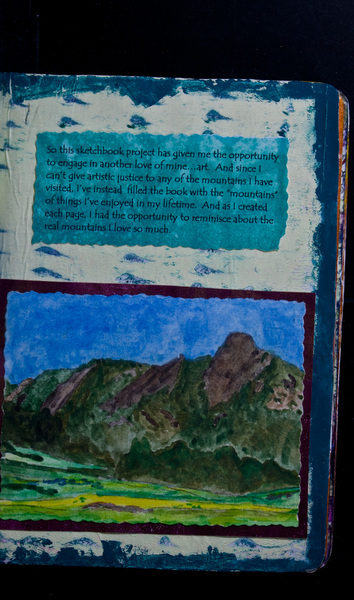 So this sketchbook project has given me the opportunity
to engage in another love of mine...art. And since I
can't give artistic justice to any of the mountains I have
visited, I've instead filled the book with the "mountains"
of things I've enjoyed in my lifetime. And as I created
each page, I had the opportunity to reminisce about the
real mountains I love so much.